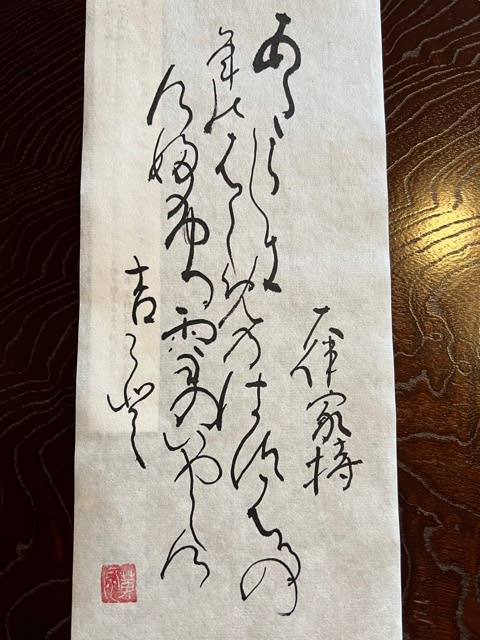 大伴家持
あらたしき
年のはしめのはつはるの
けふふる雪のいやしけ
吉こと